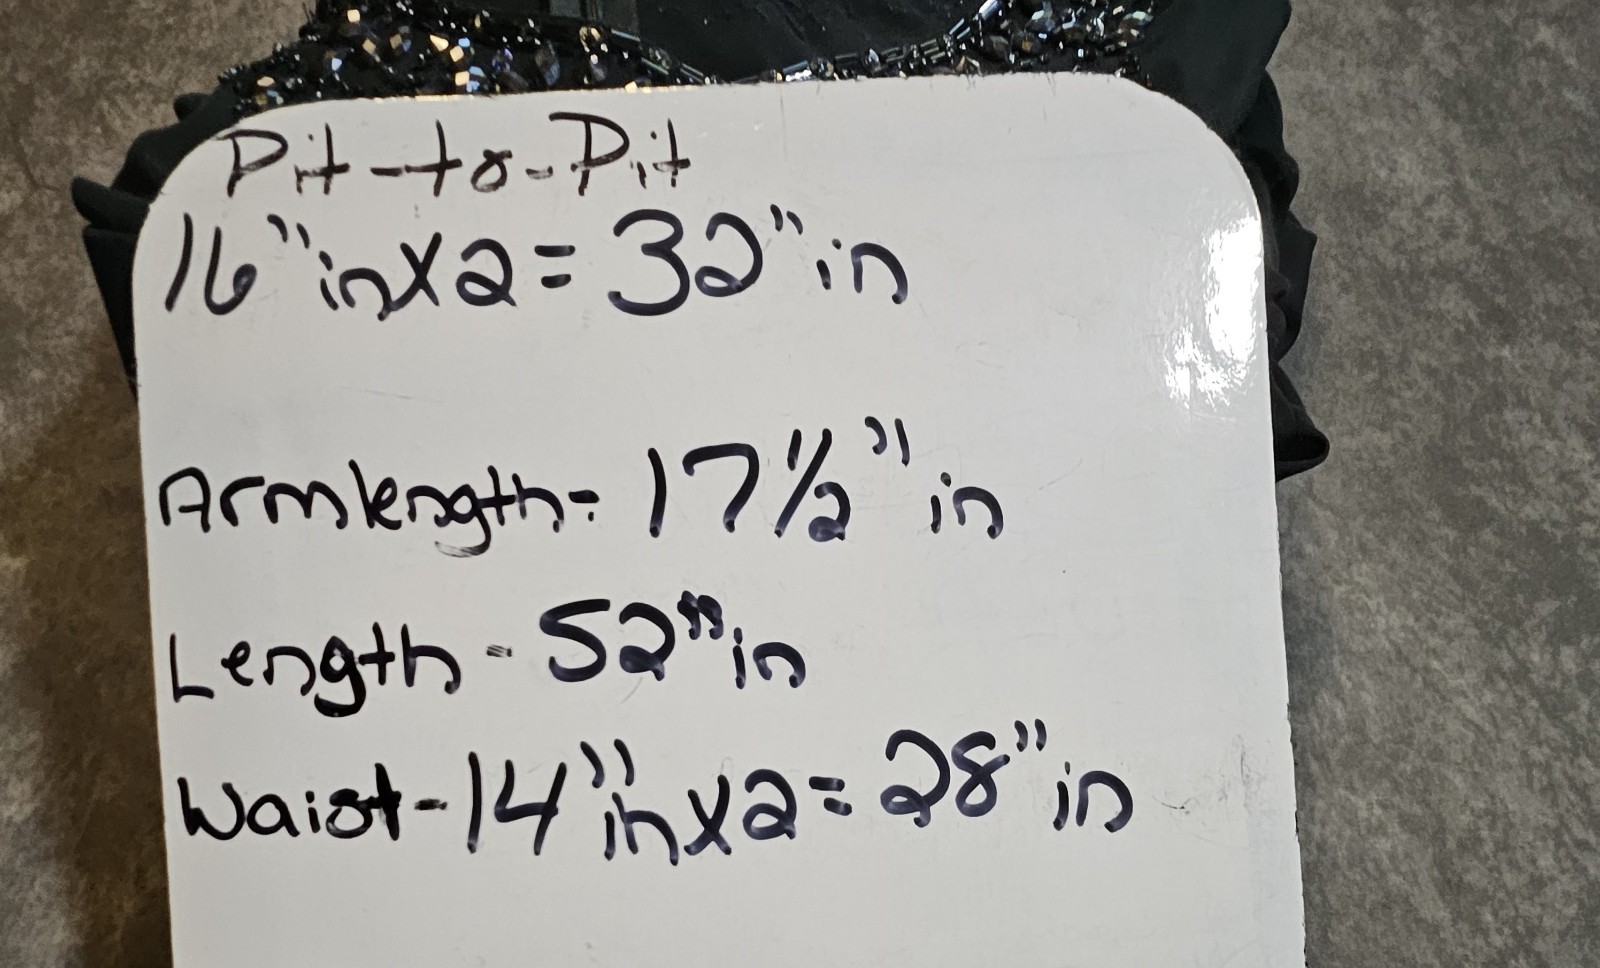 Pit-to-Pit
16" in x2 = 32" in
Armlength = 17 1/2" in
Length - 52" in
Waist - 14" in x2 = 28" in